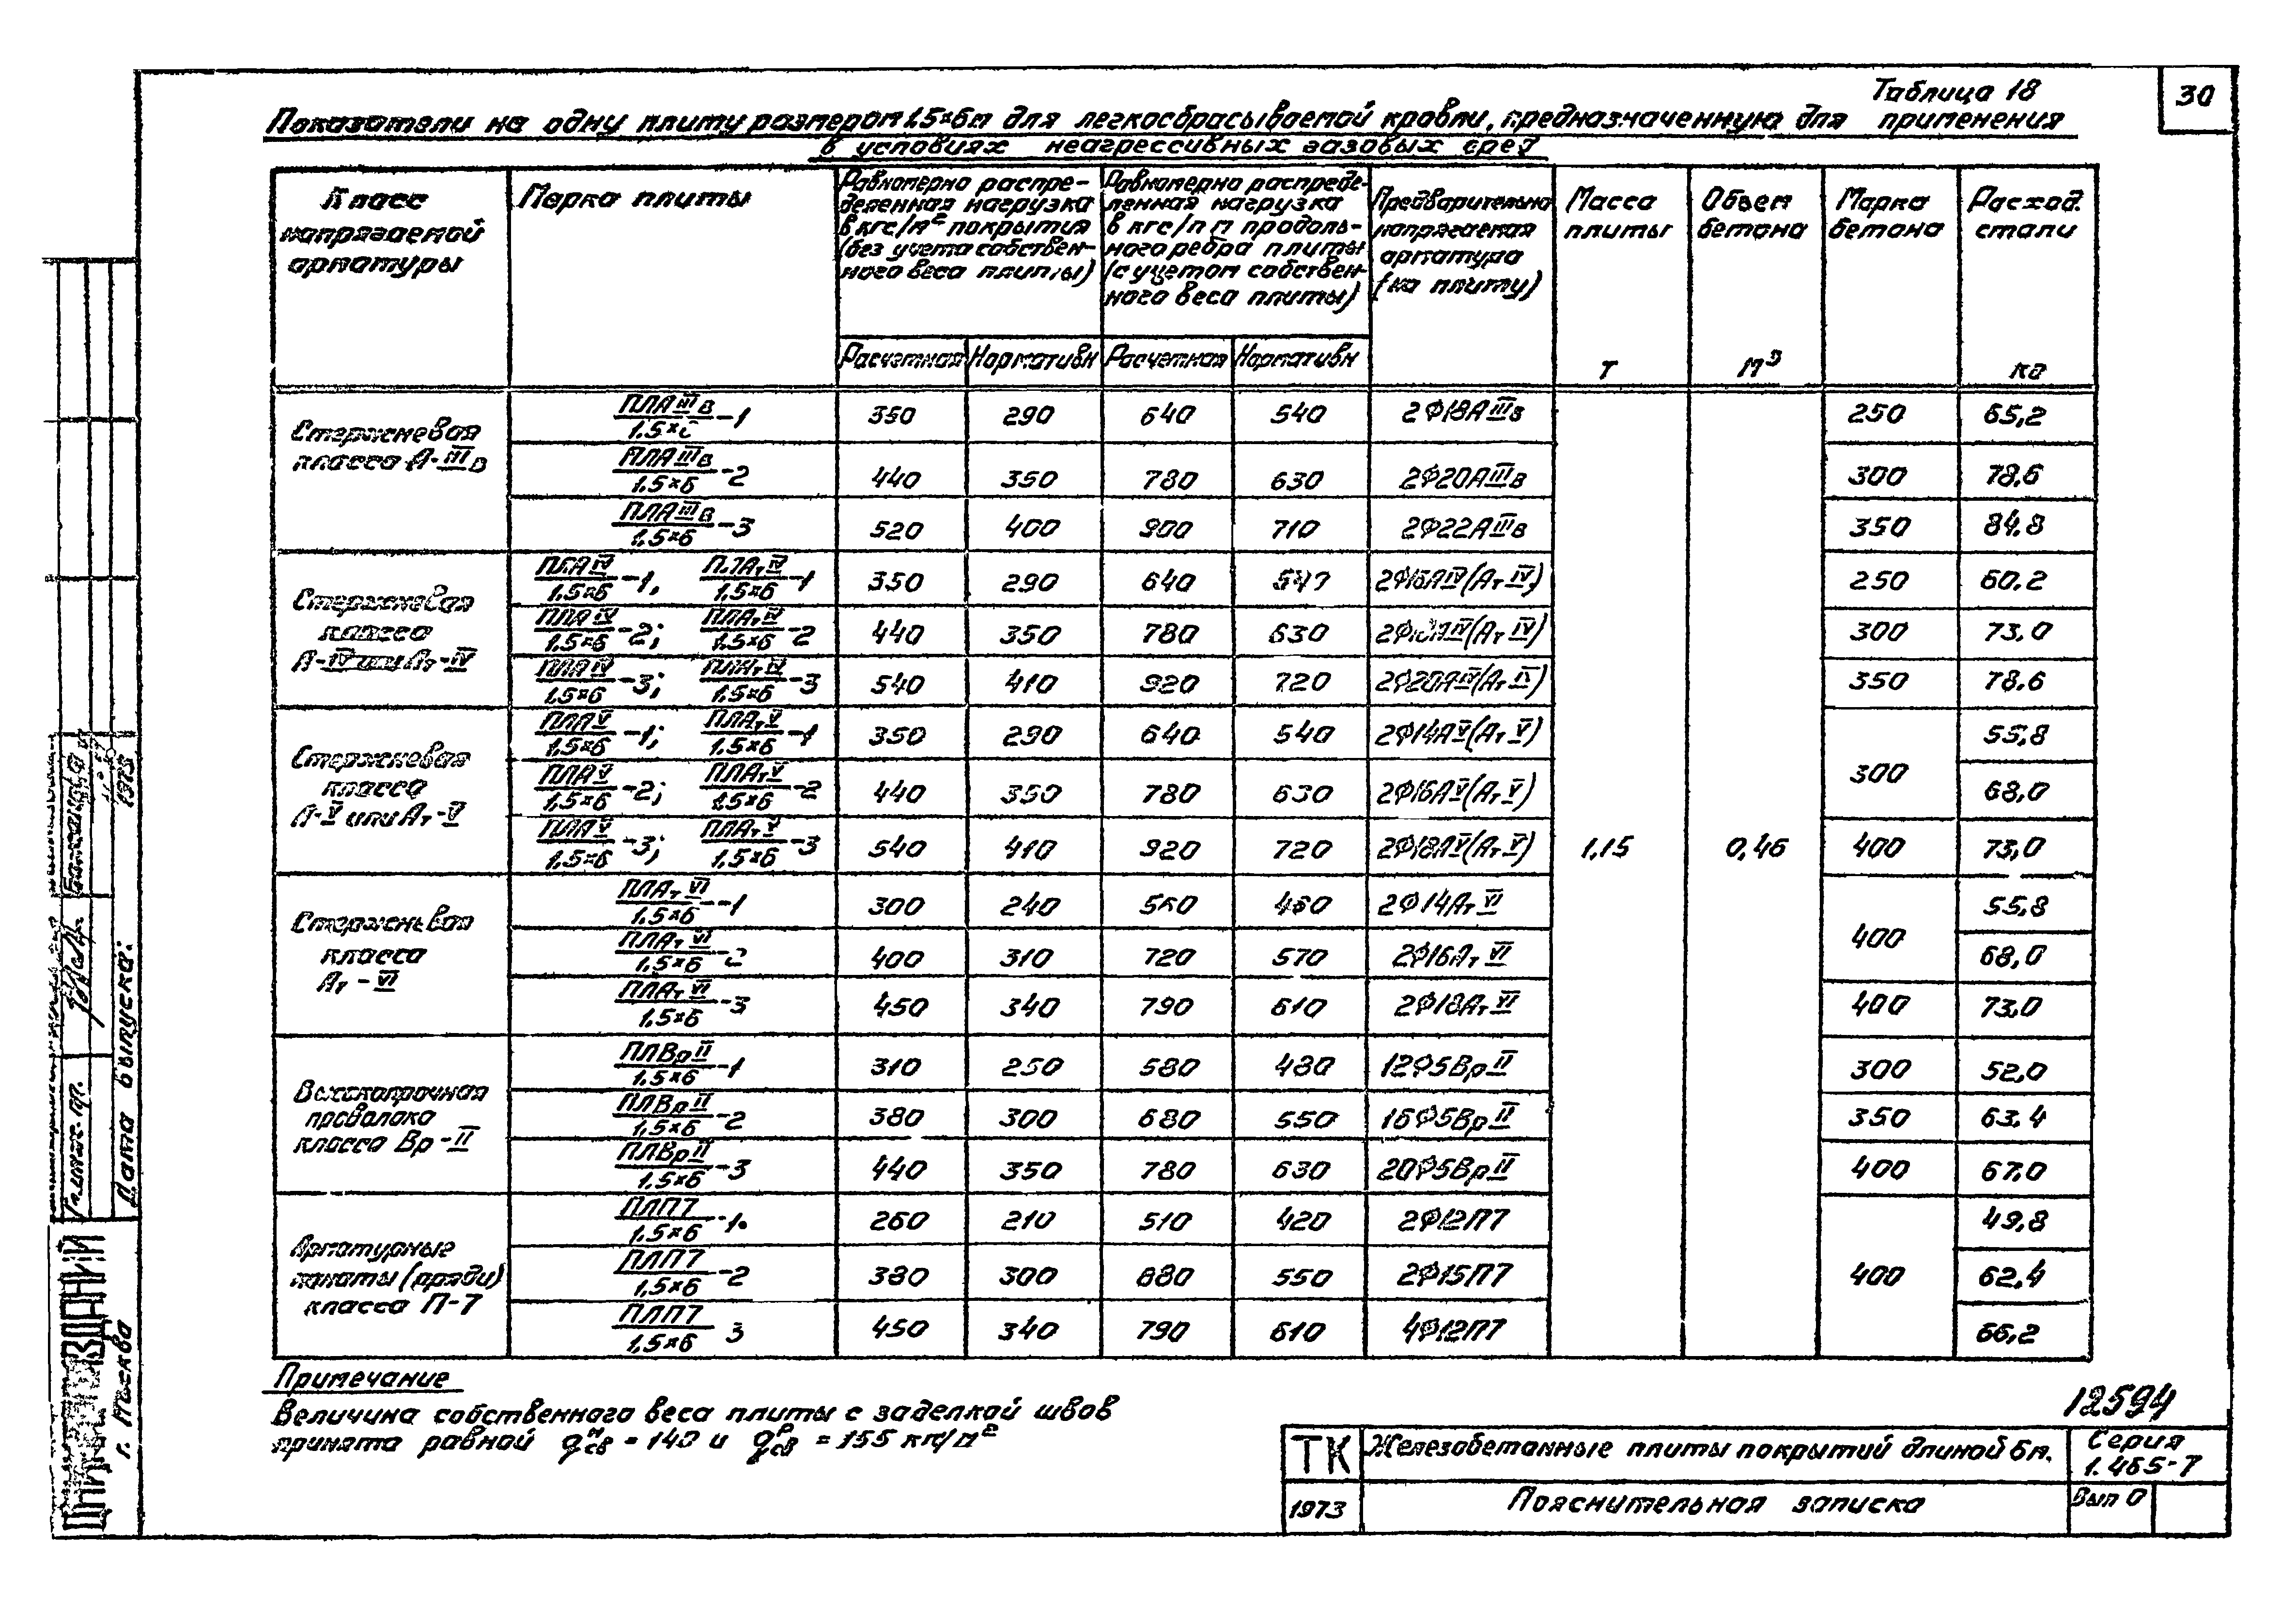 Таблица 18
30
Показатели на одну плиту размером 1,5×6м для легкосбрасываемой кровли, предназначенную для применения
в условиях неагрессивных газовых сред
Класс напрягаемой арматуры
Марка плиты
Равномерно распределенная нагрузка в кгс/м² покрытия (без учета собственного веса плиты)
Равномерно распределенная нагрузка в кгс/п м продольного ребра плиты (с учетом собственного веса плиты)
Предварительно напрягаемая арматура (на плиту)
Масса плиты т
Объем бетона м³
Марка бетона
Расход стали кг
Расчетная Нормативн Расчетная Нормативн
Стержневая класса А-IIIв
ПЛАIIIв/1,5×6-1 350 290 640 540 2Ф18АIIIв 250 65,2
ПЛАIIIв/1,5×6-2 440 350 780 630 2Ф20АIIIв 300 78,6
ПЛАIIIв/1,5×6-3 520 400 900 710 2Ф22АIIIв 350 84,8
Стержневая класса А-IV или Ат-IV
ПЛАIV/1,5×6-1, ПЛАтIV/1,5×6-1 350 290 640 540 2Ф16АIV(АтIV) 250 60,2
ПЛАIV/1,5×6-2; ПЛАтIV/1,5×6-2 440 350 780 630 2Ф18АIV(АтIV) 300 73,0
ПЛАIV/1,5×6-3; ПЛАтIV/1,5×6-3 540 410 920 720 2Ф20АIV(АтIV) 350 78,6
Стержневая класса А-V или Ат-V
ПЛАV/1,5×6-1; ПЛАтV/1,5×6-1 350 290 640 540 2Ф14АV(АтV) 300 55,8
ПЛАV/1,5×6-2; ПЛАтV/1,5×6-2 440 350 780 630 2Ф16АV(АтV) 68,0
ПЛАV/1,5×6-3; ПЛАтV/1,5×6-3 540 410 920 720 2Ф18АV(АтV) 1,15 0,46 400 73,0
Стержневая класса Ат-VI
ПЛАтVI/1,5×6-1 300 240 560 460 2Ф14АтVI 400 55,8
ПЛАтVI/1,5×6-2 400 310 720 570 2Ф16АтVI 68,0
ПЛАтVI/1,5×6-3 450 340 790 610 2Ф18АтVI 400 73,0
Высокопрочная проволока класса Вр-II
ПЛВрII/1,5×6-1 310 250 580 480 12Ф5ВрII 300 52,0
ПЛВрII/1,5×6-2 380 300 680 550 16Ф5ВрII 350 63,4
ПЛВрII/1,5×6-3 440 350 780 630 20Ф5ВрII 400 67,0
Арматурные канаты (пряди) класса П-7
ПЛП7/1,5×6-1 260 210 510 420 2Ф12П7 49,8
ПЛП7/1,5×6-2 380 300 680 550 2Ф15П7 400 62,4
ПЛП7/1,5×6 3 450 340 790 610 4Ф12П7 66,2
Примечание
Величина собственного веса плиты с заделкой швов
принята равной qᴴсв = 140 и qᴾсв = 155 кг/м²
12594
ТК Железобетонные плиты покрытий длиной 6м. Серия 1.465-7
1973 Пояснительная записка Вып 0
Дата выпуска: 1973
г. Москва